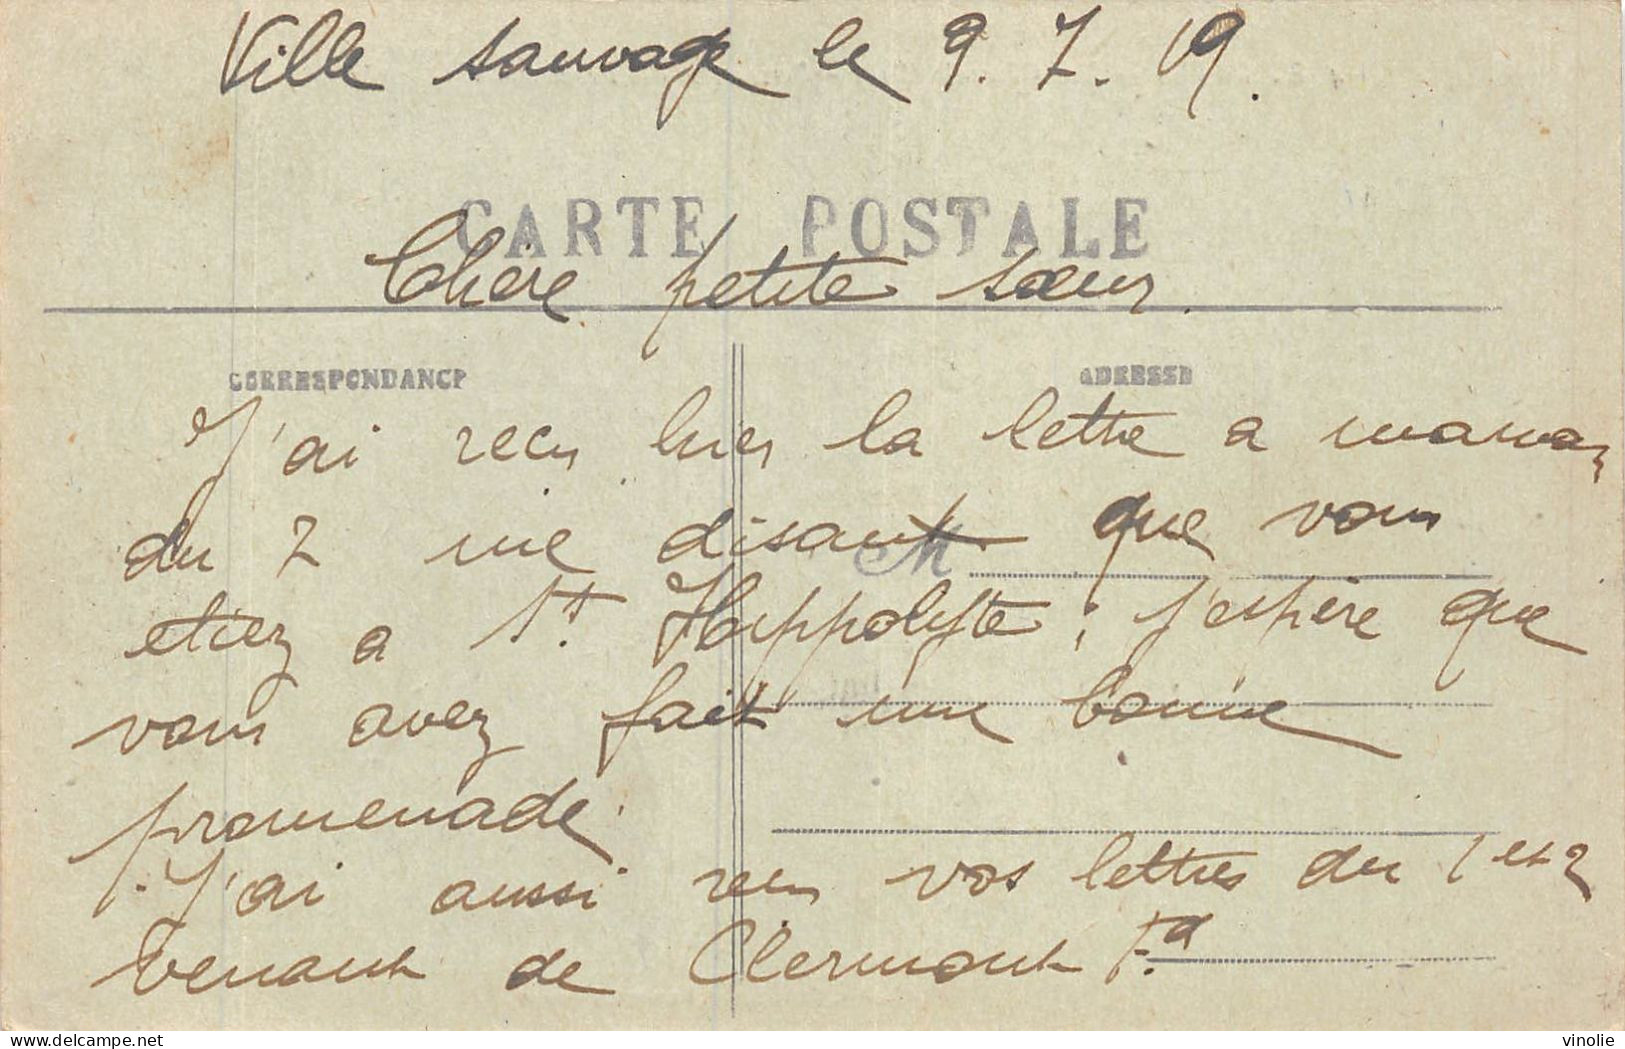 Ville sauvage le 9.7.19.
CARTE POSTALE
Chère petite soeur.
CORRESPONDANCE
ADRESSE
J'ai reçu hier la lettre a maman
du 7 me disant que vous
M
etiez a St. Hippolyte ; j'espère que
vous avez fait une bonne
promenade.
J'ai aussi reçu vos lettres du 1 et 2
venant de Clermont Fd.
www.delcampe.net
vinolie